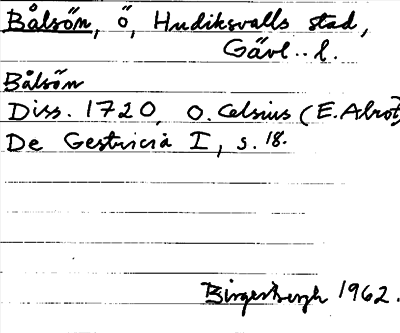 Bålsön, ö, Hudiksvalls stad,
Gävl..l.
Bålsön
Diss. 1720, O. Celsius (E. Alrot)
De Gestricia I, s. 18.
1962.